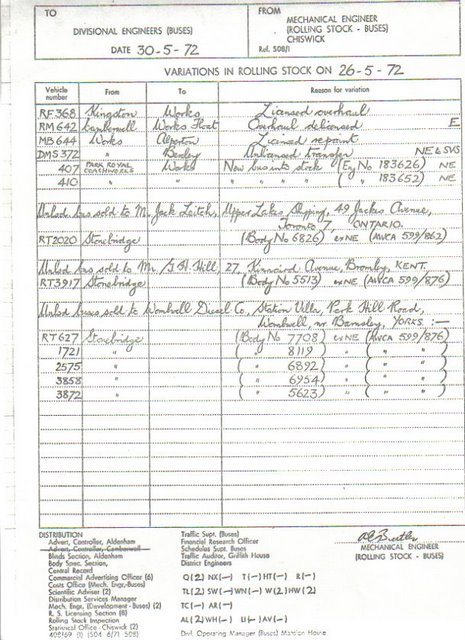 TO
DIVISIONAL ENGINEERS (BUSES)
DATE 30-5-72
FROM
MECHANICAL ENGINEER
(ROLLING STOCK - BUSES)
CHISWICK
Ref. 508/1
VARIATIONS IN ROLLING STOCK ON 26-5-72
Vehicle number From To Reason for variation
RF 368 Kingston Works Licensed overhaul
RM 642 Camberwell Works Float Overhaul delicensed E
MB 644 Works Alperton Licensed repaint
DMS 372 " Bexley Unlicensed transfer NE & SVS
407 PARK ROYAL COACHWORKS Works New bus into stock (Eng No 183626) NE
410 " " " " " " ( " 183652) NE
Unlicd bus sold to Mr. Jack Leitch, Upper Lakes Shipping, 49 Jackes Avenue,
Toronto 7, ONTARIO.
RT2020 Stonebridge (Body No 6826) ex NE (AWCA 599/862)
Unlicd bus sold to Mr. G.H. Hill, 27, Kinnaird Avenue, Bromley, KENT.
RT3917 Stonebridge (Body No 5513) ex NE (AWCA 599/876)
Unlicd buses sold to Wombwell Diesel Co, Station Villa, Park Hill Road,
Wombwell, nr Barnsley, YORKS :—
RT627 Stonebridge (Body No 7708) ex NE (AWCA 599/876)
1721 " ( " 8119) " ( " " )
2575 " ( " 6892) " ( " " )
3858 " ( " 6954) " ( " " )
3872 " ( " 5623) " ( " " )
DISTRIBUTION
Advert, Controller, Aldenham
Advert, Controller, Camberwell
Blinds Section, Aldenham
Body Spec. Section,
Central Record
Commercial Advertising Officer (6)
Costs Office (Mech. Engr.-Buses)
Scientific Adviser (2)
Distribution Services Manager
Mech. Engr. (Development - Buses) (2)
R. S. Licensing Section (8)
Rolling Stock Inspection
Statistical Office - Chiswick (2)
Traffic Supt. (Buses)
Financial Research Officer
Schedules Supt. Buses
Traffic Auditor, Griffith House
District Engineers
Q(2) NX(-) T(-) HT(-) R(-)
TL(2) SW(-) WN(-) W(2) HW(2)
TC(-) AR(-)
AL(2) WH(-) U(-) AV(-)
Divl. Operating Manager (Buses) Mansion House
MECHANICAL ENGINEER
(ROLLING STOCK - BUSES)